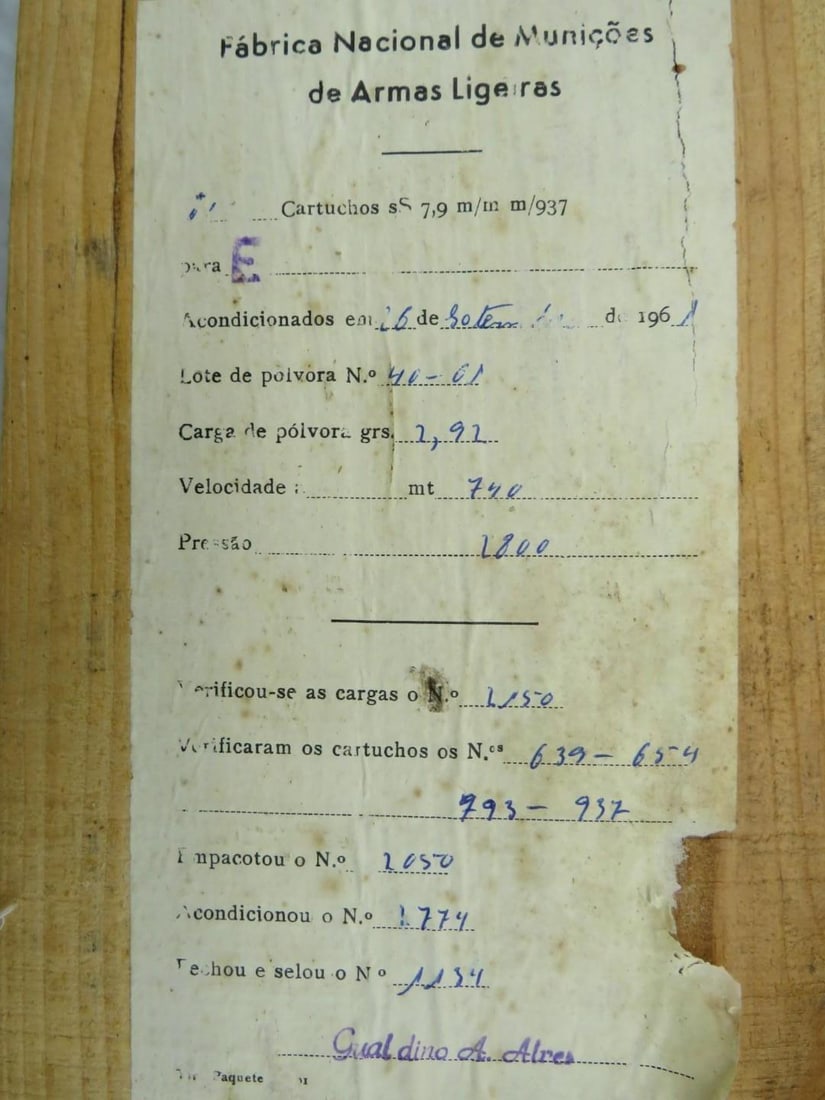 Fábrica Nacional de Munições
de Armas Ligeiras
Cartuchos sS 7,9 m/m m/937
para E
Acondicionados em 26 de de 1961
Lote de polvora N.º 40-61
Carga de pólvora grs. 2,92
Velocidade : mt 740
Pressão 2800
Verificou-se as cargas o N.º 1150
Verificaram os cartuchos os N.os 639 - 654
793 - 937
Empacotou o N.º 1050
Acondicionou o N.º 1774
Fechou e selou o Nº 1134
Gualdino A. Alves
Paquete